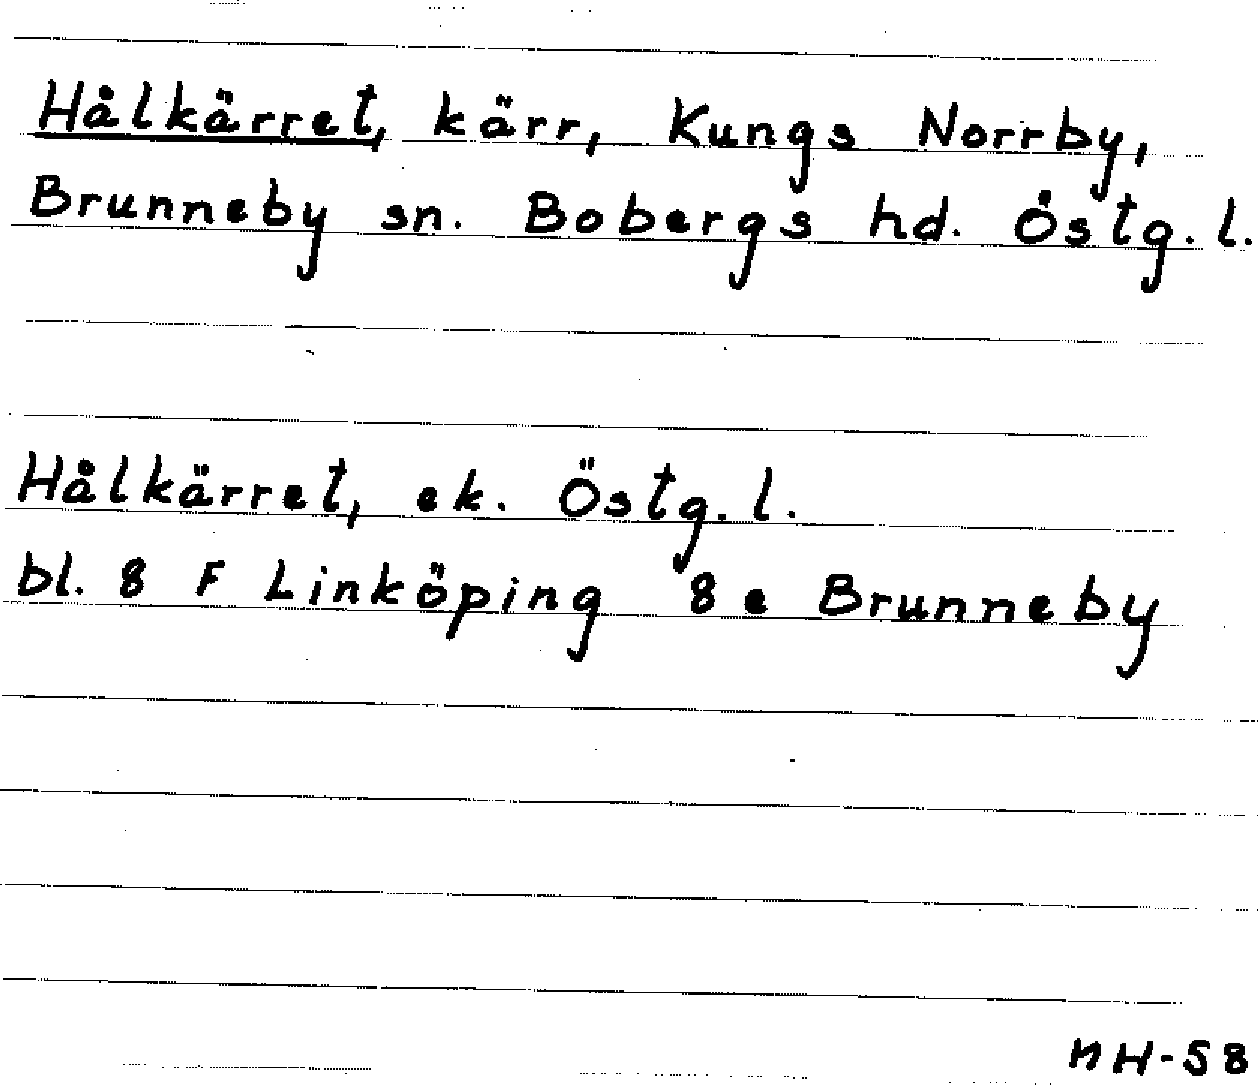 Hålkärret, kärr, Kungs Norrby,
Brunneby sn. Bobergs hd. Östg. l.
Hålkärret, ek. Östg. l.
bl. 8 F Linköping 8 e Brunneby
NH-58